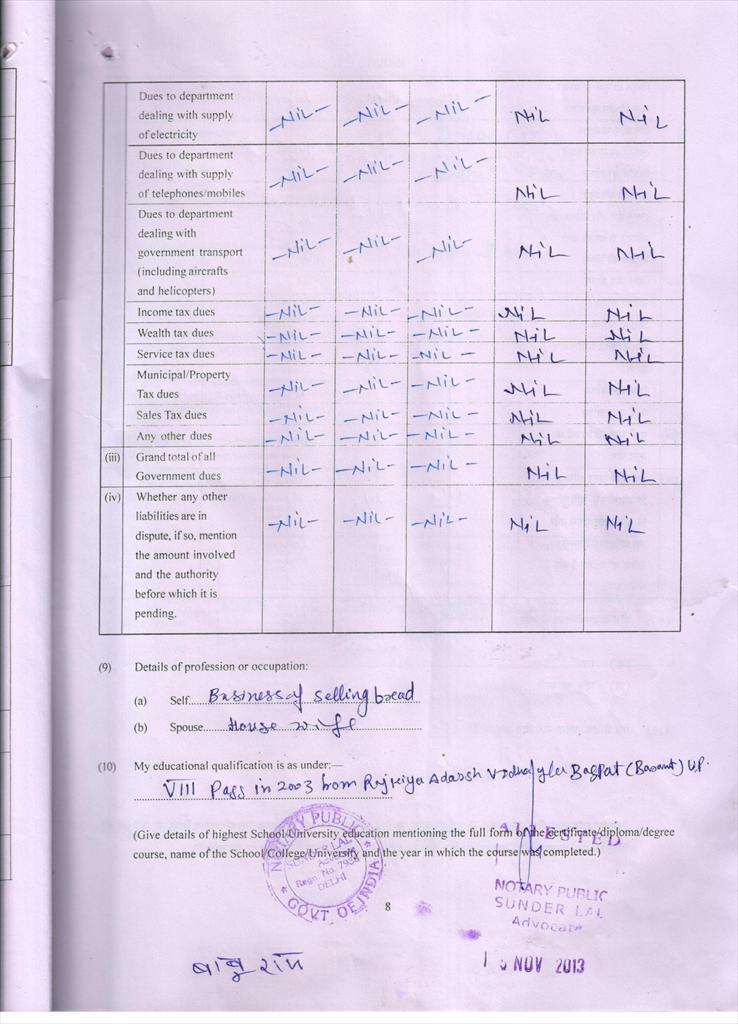 Dues to department
dealing with supply
of electricity
-NiL- -NiL- -NiL- NiL NiL
Dues to department
dealing with supply
of telephones/mobiles
-NiL- -NiL- -NiL- NiL NiL
Dues to department
dealing with
government transport
(including aircrafts
and helicopters)
-NiL- -NiL- -NiL- NiL NiL
Income tax dues -NiL- -NiL- -NiL- NiL NiL
Wealth tax dues -NiL- -NiL- -NiL- NiL NiL
Service tax dues -NiL- -NiL- -NiL- NiL NiL
Municipal/Property
Tax dues
-NiL- -NiL- -NiL- NiL NiL
Sales Tax dues -NiL- -NiL- -NiL- NiL NiL
Any other dues -NiL- -NiL- -NiL- NiL NiL
(iii) Grand total of all
Government dues
-NiL- -NiL- -NiL- NiL NiL
(iv) Whether any other
liabilities are in
dispute, if so, mention
the amount involved
and the authority
before which it is
pending.
-NiL- -NiL- -NiL- NiL NiL
(9) Details of profession or occupation:
(a) Self Business of selling bread
(b) Spouse House wife
(10) My educational qualification is as under:—
VIII Pass in 2003 from Adarsh Bagpat U.P.
(Give details of highest School/University education mentioning the full form of the certificate/diploma/degree
course, name of the School/College/University and the year in which the course was completed.)
ATTESTED
NOTARY PUBLIC
SUNDER LAL
Advocate
NOTARY PUBLIC
SUNDER LAL
Regn. No. 7938
DELHI
GOVT. OF INDIA
8
NOV 2013